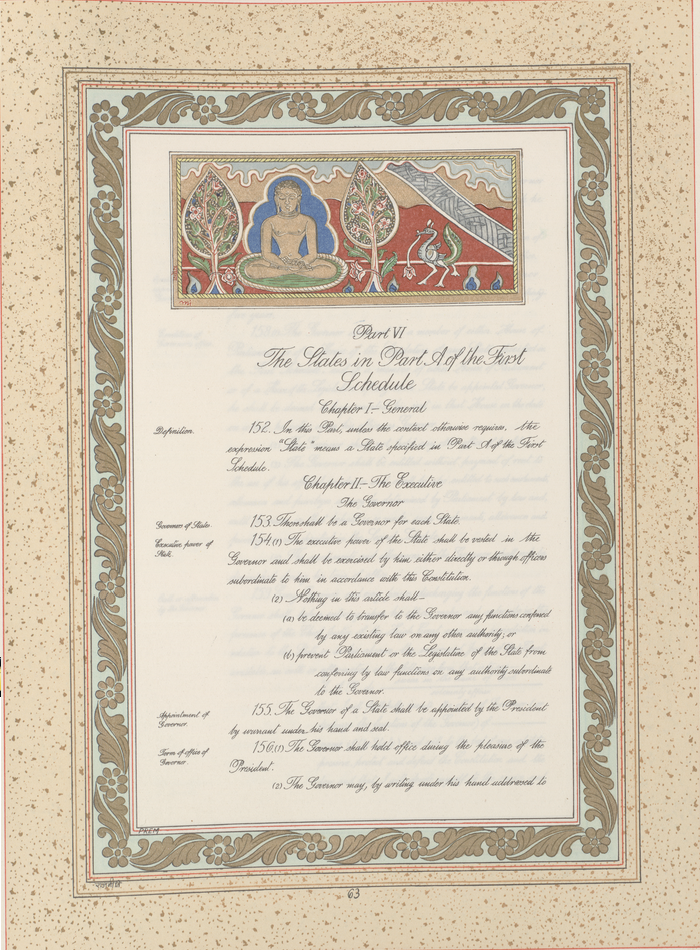 Part VI
The States in Part A of the First
Schedule
Chapter I—General
Definition.
152. In this Part, unless the context otherwise requires, the
expression "State" means a State specified in Part A of the First
Schedule.
Chapter II—The Executive
The Governor
Governors of States.
153. There shall be a Governor for each State.
Executive power of
State.
154.(1) The executive power of the State shall be vested in the
Governor and shall be exercised by him either directly or through officers
subordinate to him in accordance with this Constitution.
(2) Nothing in this article shall—
(a) be deemed to transfer to the Governor any functions conferred
by any existing law on any other authority; or
(b) prevent Parliament or the Legislature of the State from
conferring by law functions on any authority subordinate
to the Governor.
Appointment of
Governor.
155. The Governor of a State shall be appointed by the President
by warrant under his hand and seal.
Term of office of
Governor.
156.(1) The Governor shall hold office during the pleasure of the
President.
(2) The Governor may, by writing under his hand addressed to
PREM
63